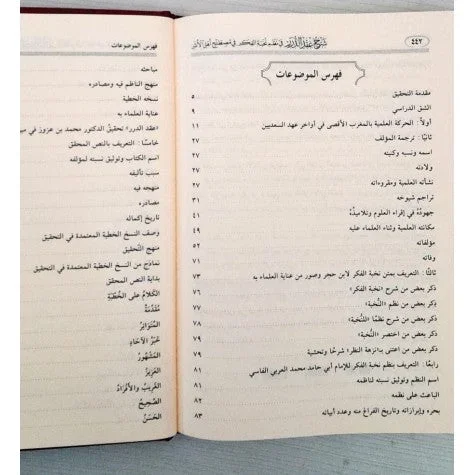 ٤٤٢ شرح عقد الدرر في نظم نخبة الفكر في مصطلح أهل الأثر
فهرس الموضوعات
مقدمة التحقيق ٥
الشق الدراسي ٩
أولاً: الحركة العلمية بالمغرب الأقصى في أواخر عهد السعديين ١١
ثانيًا: ترجمة المؤلف ٢٧
اسمه ونسبه وكنيته ٢٧
ولادته ٢٧
نشأته العلمية ومقروءاته ٢٧
تراجم شيوخه
جهودُهُ في إقراء العلوم وتلاميذُهُ ٤١
مكانته العلمية وثناء العلماء عليه ٤٩
مؤلفاته ٥٢
وفاته
ثالثًا: التعريف بمتن نخبة الفكر لابن حجر وصور من عناية العلماء به ٧٣
ذكر بعض من شرح «نخبة الفكر» ٧٦
ذكر بعض من نظم «النُّخبة» ٧٧
ذكر بعض من شرح نظمًا «للنُّخبة» ٧٨
ذكر بعض من اختصر «النُّخبة» ٧٩
ذكر بعض من اعتنى بـ«نزهة النظر» شرحًا وتحشية ٧٩
رابعًا: التعريف بنظم نخبة الفكر للإمام أبي حامد محمد العربي الفاسي ٨١
اسم النظم وتوثيق نسبته لناظمه ٨١
الباعث على نظمه
بحره وإبرازاته وتاريخ الفراغ منه وعدد أبياته ٨٣
فهرس الموضوعات
مباحثه
منهج الناظم فيه ومصادره
نسخه الخطية
عناية العلماء به
«عقد الدرر» تحقيق الدكتور محمد بن عزوز في
خامسًا: التعريف بالنص المحقق
اسم الكتاب وتوثيق نسبته لمؤلفه
سبب تأليفه
منهجه فيه
مصادره
تاريخ إكماله
وصف النسخ الخطية المعتمدة في التحقيق
منهج التَّحقيق
نماذج من النسخ الخطية المعتمدة في التحقيق
بداية النص المحقق
الكَلامُ عَلى الخُطْبَةِ
مُقَدِّمَةٌ
المُتَوَاتِرُ
خَبَرُ الآحَادِ
المَشْهُورُ
العَزِيزُ
الغَرِيبُ وَالأَفْرَادُ
الصَّحِيحُ
الحَسَنُ